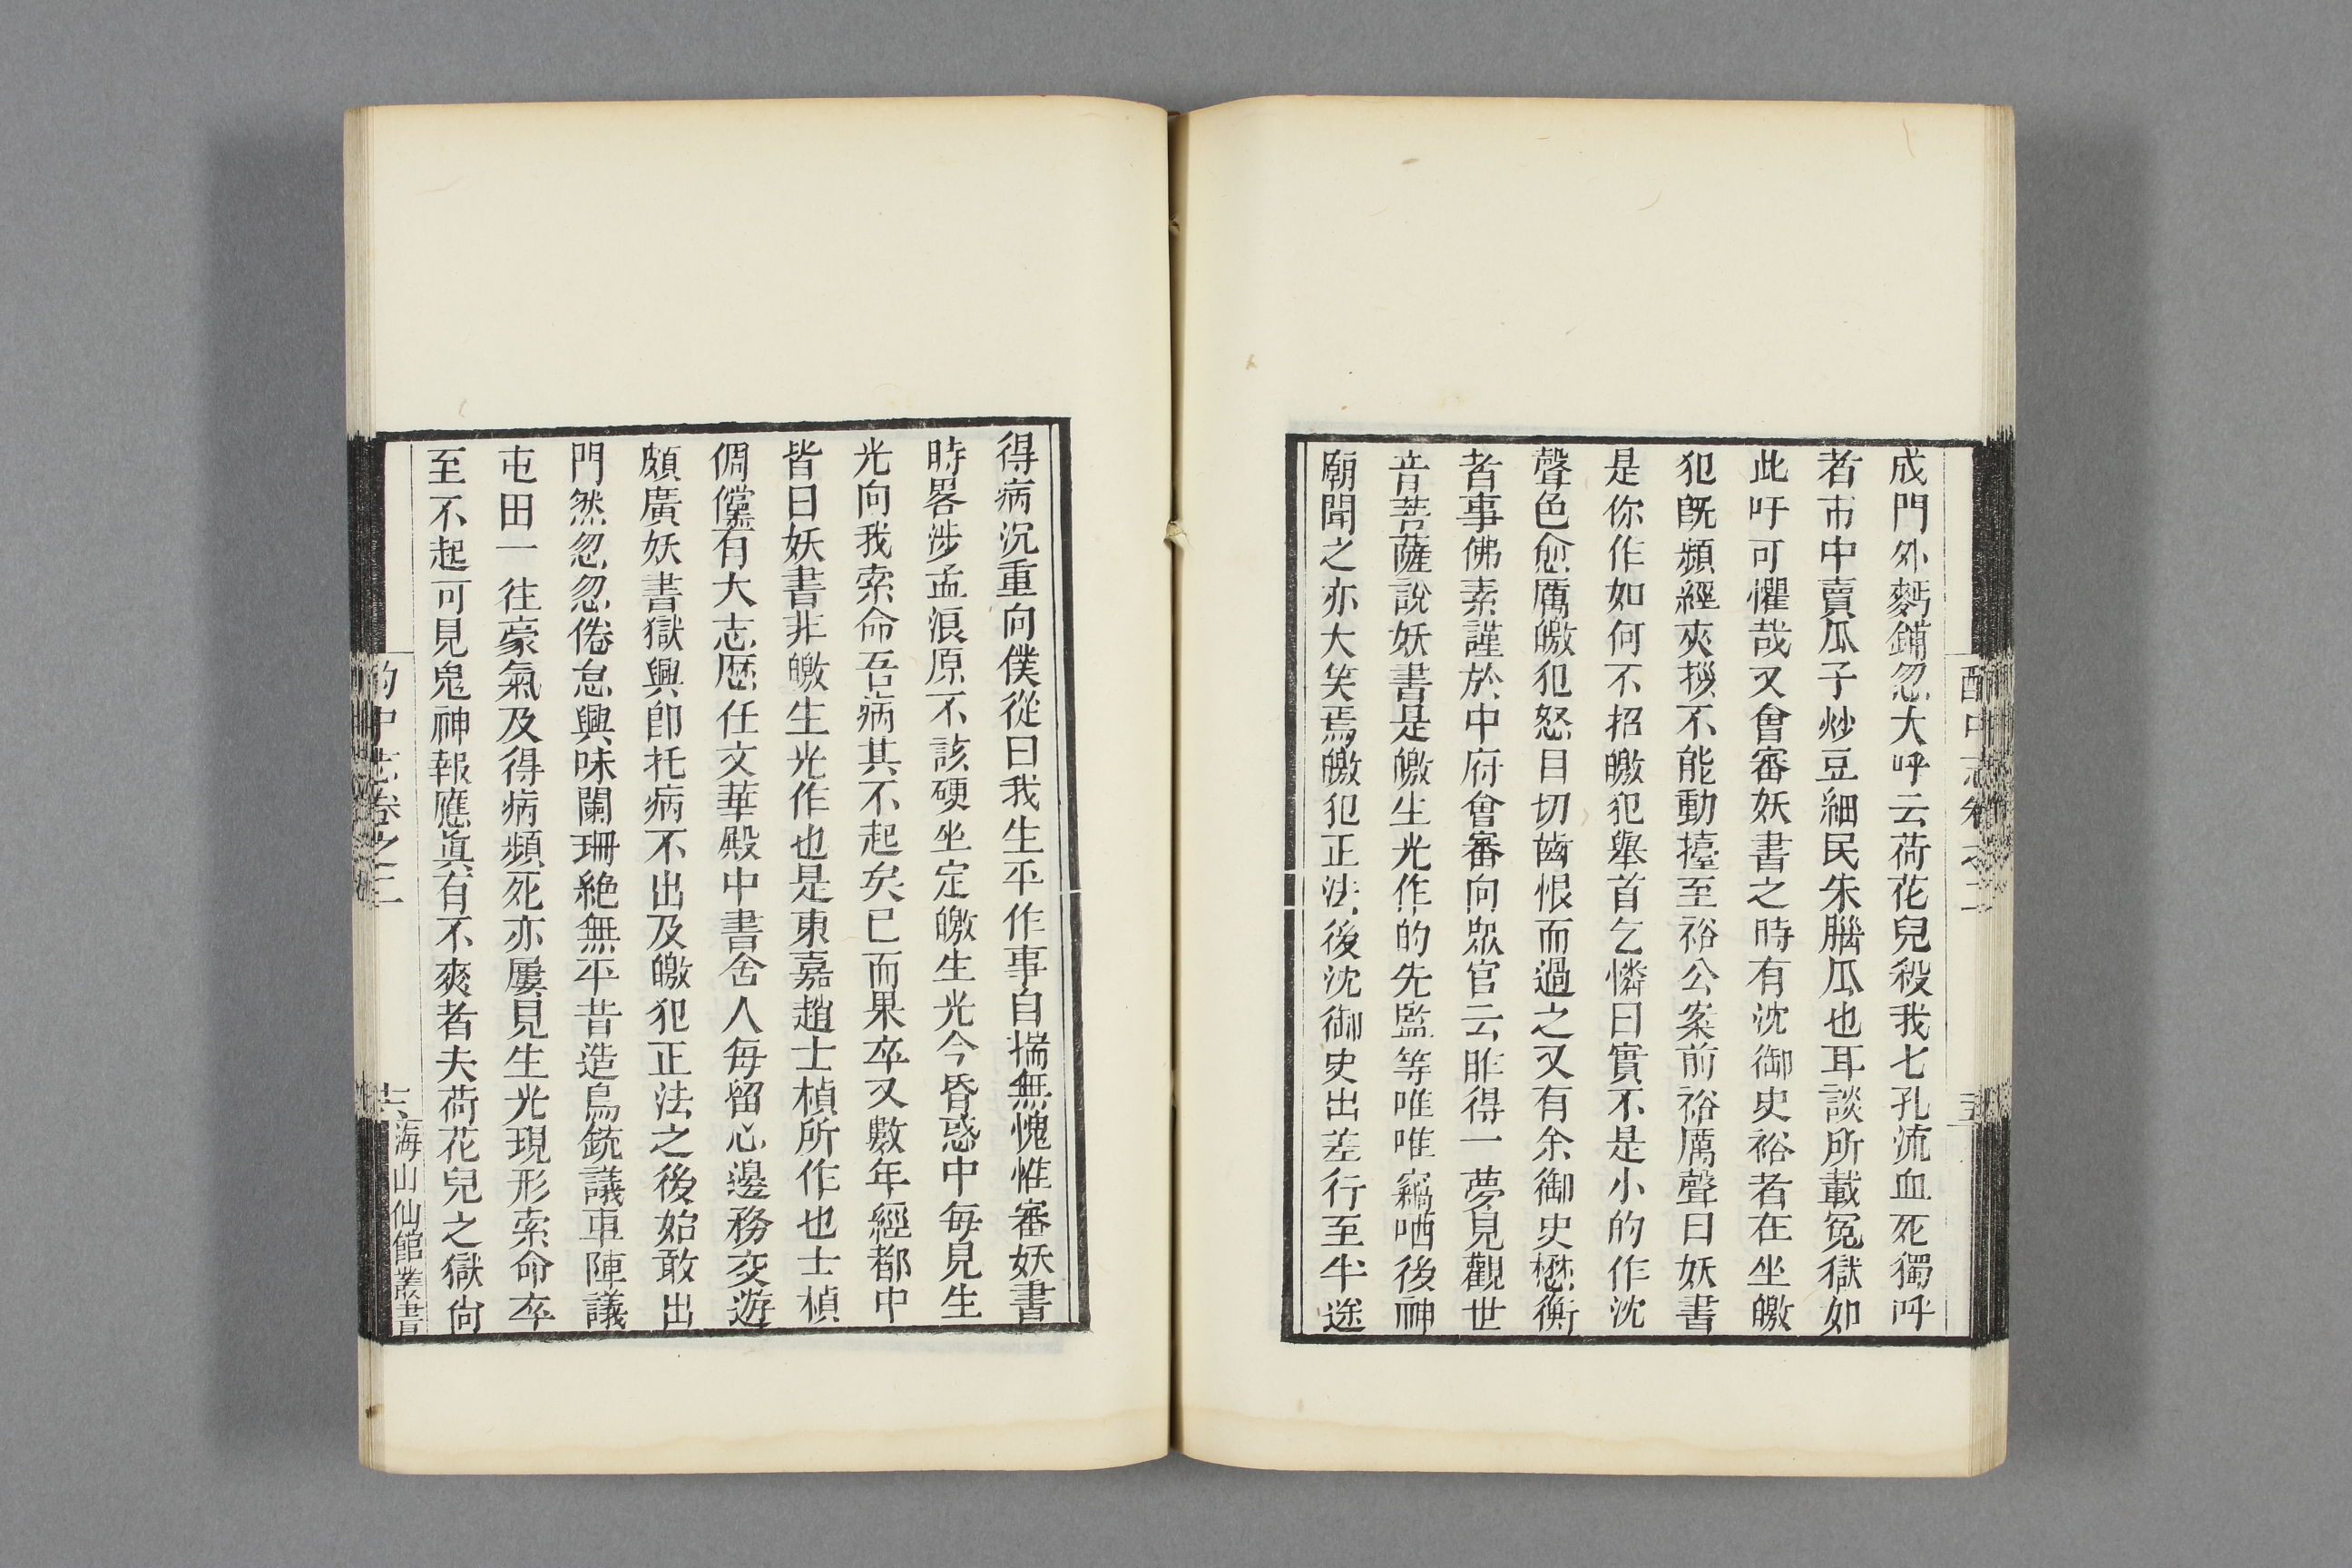 成門外麫鋪忽大呼云荷花兒殺我七孔流血死獨呼
者市中賣瓜子炒豆細民朱腦瓜也耳談所載冤獄如
此吁可懼哉又會審妖書之時有沈御史裕者在坐皦
犯旣頻經夾拶不能動擡至裕公案前裕厲聲曰妖書
是你作如何不招皦犯舉首乞憐曰實不是小的作沈
聲色愈厲皦犯怒目切齒恨而過之又有余御史懋衡
者事佛素謹於中府會審向眾官云昨得一夢見觀世
音菩薩說妖書是皦生光作的先監等唯唯竊哂後神
廟聞之亦大笑焉皦犯正法後沈御史出差行至半途
得病沉重向僕從曰我生平作事自揣無愧惟審妖書
時畧涉孟浪原不該硬坐定皦生光今昏惑中每見生
光向我索命吾病其不起矣已而果卒又數年經都中
皆曰妖書非皦生光作也是東嘉趙士楨所作也士楨
倜儻有大志歷任文華殿中書舍人每留心邊務交遊
頗廣妖書獄興卽托病不出及皦犯正法之後始敢出
門然忽忽倦怠興味闌珊絕無平昔造鳥銃議車陣議
屯田一往豪氣及得病頻死亦屢見生光現形索命卒
至不起可見鬼神報應眞有不爽者夫荷花兒之獄尙
酌中志卷之二
海山仙館叢書